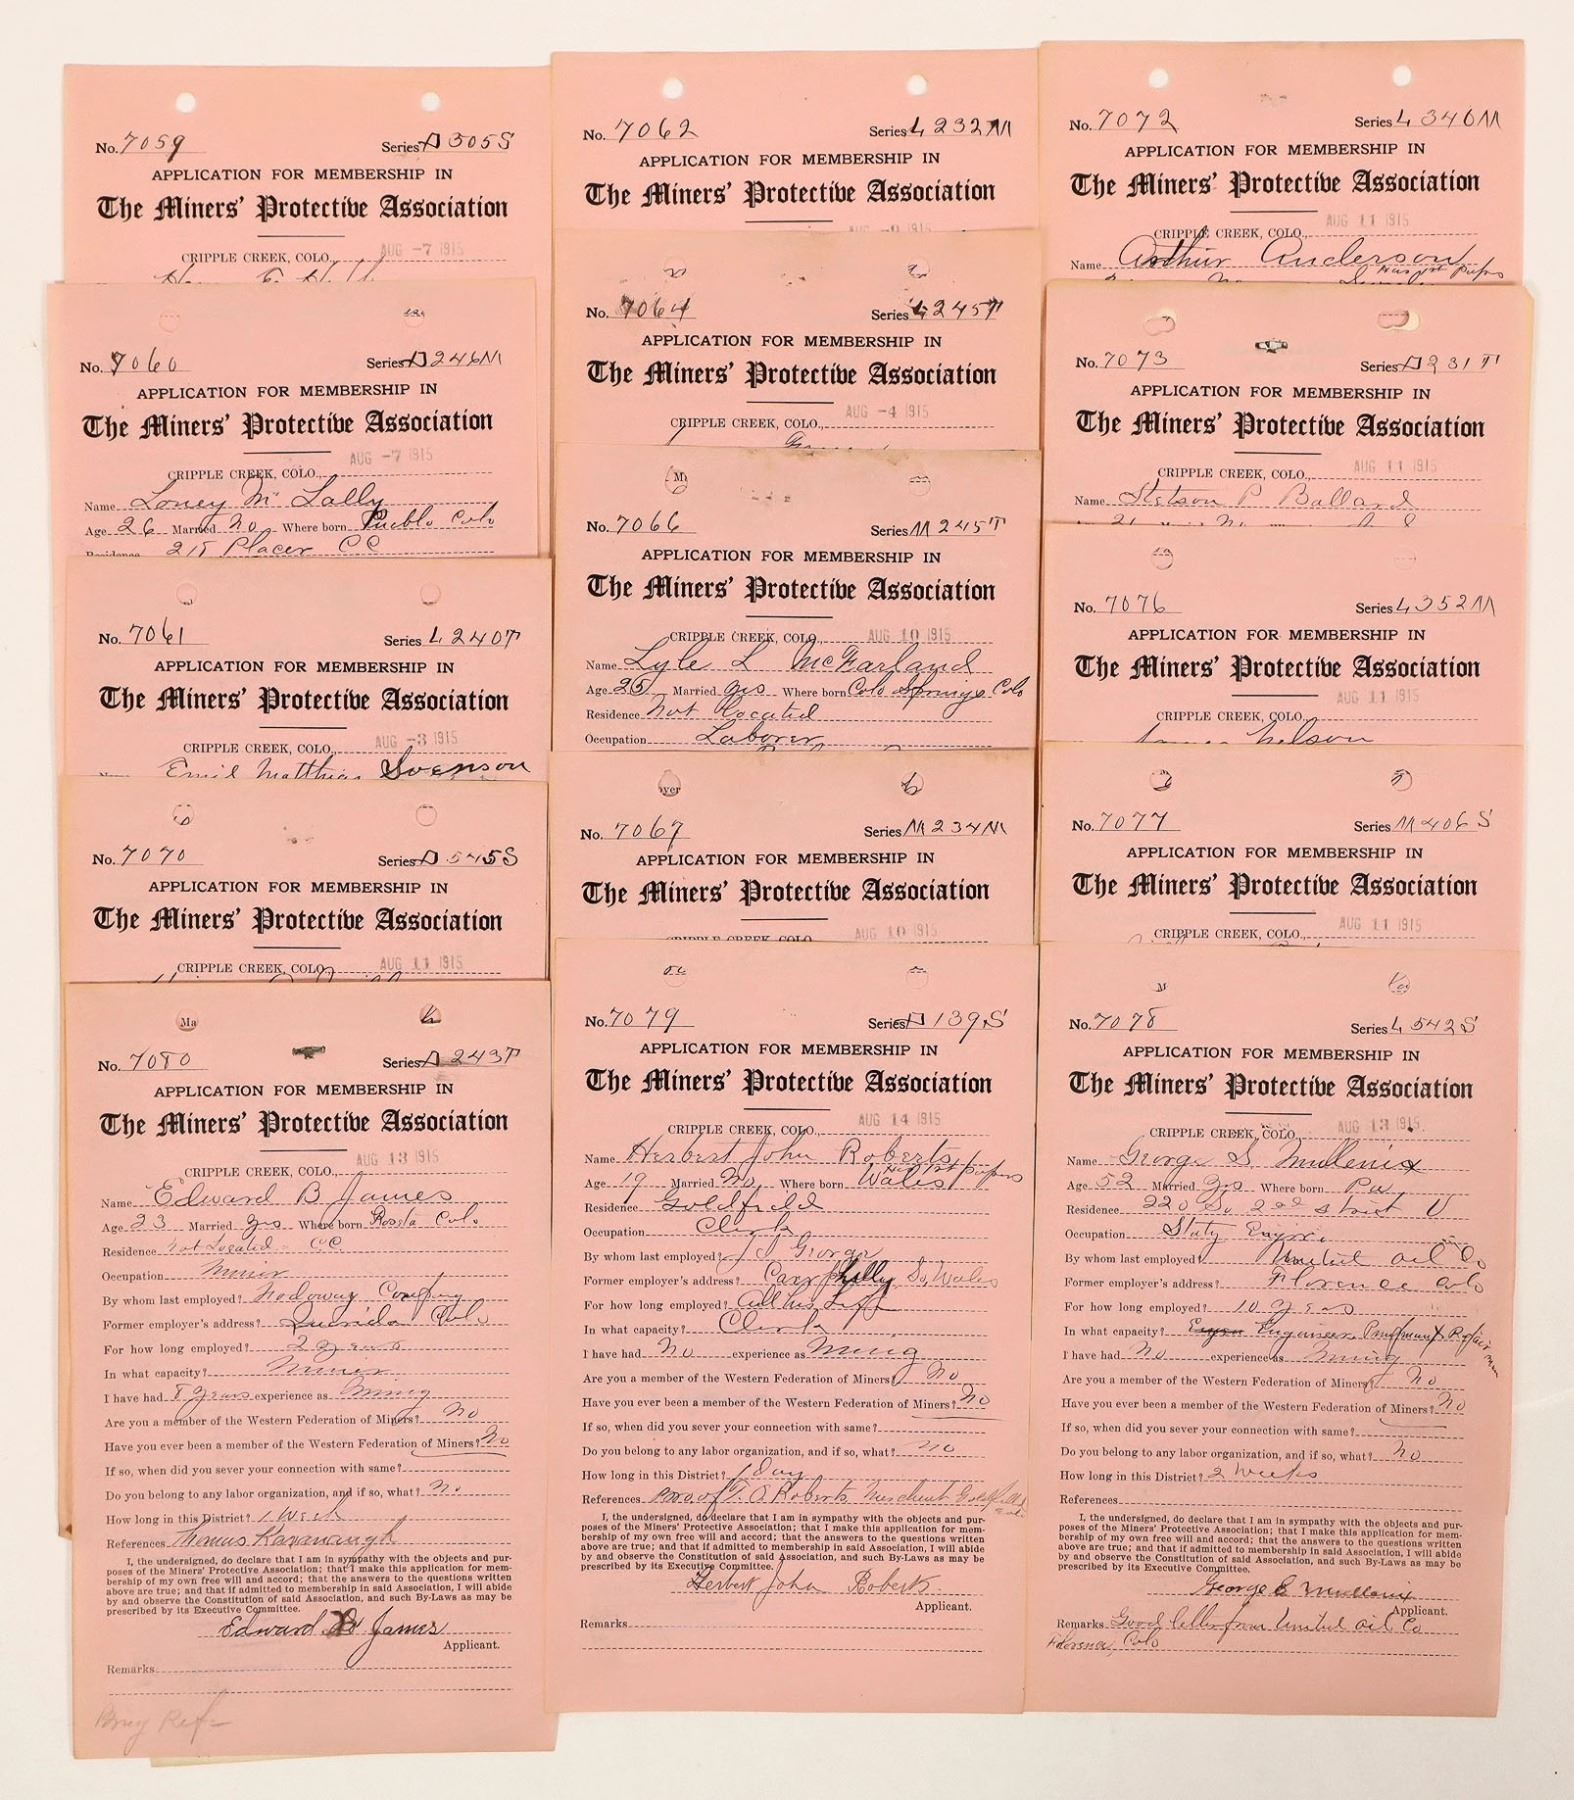 No. 7059 Series D 305S
APPLICATION FOR MEMBERSHIP IN
The Miners' Protective Association
CRIPPLE CREEK, COLO., AUG -7 1915
No. 7060 Series D 246M
APPLICATION FOR MEMBERSHIP IN
The Miners' Protective Association
CRIPPLE CREEK, COLO., AUG -7 1915
Name Loney Mc Lally
Age 26 Married No Where born Pueblo Colo
Residence 215 Placer CC
No. 7061 Series L 240T
APPLICATION FOR MEMBERSHIP IN
The Miners' Protective Association
CRIPPLE CREEK, COLO., AUG -3 1915
Emil Matthias Svenson
No. 7070 Series D 545S
APPLICATION FOR MEMBERSHIP IN
The Miners' Protective Association
CRIPPLE CREEK, COLO. AUG 11 1915
Ma
No. 7080 Series D 243T
APPLICATION FOR MEMBERSHIP IN
The Miners' Protective Association
CRIPPLE CREEK, COLO., AUG 13 1915
Name Edward B James
Age 23 Married yes Where born Rosita Colo
Residence Not Located - CC
Occupation Miner
By whom last employed? Company
Former employer's address? Querida Colo
For how long employed? 2 years
In what capacity? Miner
I have had 8 years experience as Minig
Are you a member of the Western Federation of Miners? No
Have you ever been a member of the Western Federation of Miners? No
If so, when did you sever your connection with same?
Do you belong to any labor organization, and if so, what? No
How long in this District? 1 Week
References Thomas Kavanaugh
I, the undersigned, do declare that I am in sympathy with the objects and pur-
poses of the Miners' Protective Association; that I make this application for mem-
bership of my own free will and accord; that the answers to the questions written
above are true; and that if admitted to membership in said Association, I will abide
by and observe the Constitution of said Association, and such By-Laws as may be
prescribed by its Executive Committee.
Edward B James
Applicant.
Remarks
No. 7062 Series L 232M
APPLICATION FOR MEMBERSHIP IN
The Miners' Protective Association
No. 7064 Series L 245T
APPLICATION FOR MEMBERSHIP IN
The Miners' Protective Association
CRIPPLE CREEK, COLO., AUG -4 1915
No. 7066 Series M 245T
APPLICATION FOR MEMBERSHIP IN
The Miners' Protective Association
CRIPPLE CREEK, COLO., AUG 10 1915
Name Lyle L McFarland
Age 25 Married yes Where born Colo Springs Colo
Residence Not Located
Occupation Laborer
No. 7067 Series M 234M
APPLICATION FOR MEMBERSHIP IN
The Miners' Protective Association
CRIPPLE CREEK, COLO. AUG 10 1915
No. 7079 Series D 139S
APPLICATION FOR MEMBERSHIP IN
The Miners' Protective Association
AUG 14 1915
CRIPPLE CREEK, COLO.,
Name Herbert John Roberts
Has 1st papers
Age 19 Married No Where born Wales
Residence Goldfield
Occupation Clerk
By whom last employed? George
Former employer's address? Carrphilly So. Wales
For how long employed? All his Life
In what capacity? Clerk
I have had No experience as Minig
Are you a member of the Western Federation of Miners? No
Have you ever been a member of the Western Federation of Miners? No
If so, when did you sever your connection with same?
Do you belong to any labor organization, and if so, what? No
How long in this District? 1 Day
References Roberts Merchant Goldfield
I, the undersigned, do declare that I am in sympathy with the objects and pur-
poses of the Miners' Protective Association; that I make this application for mem-
bership of my own free will and accord; that the answers to the questions written
above are true; and that if admitted to membership in said Association, I will abide
by and observe the Constitution of said Association, and such By-Laws as may be
prescribed by its Executive Committee.
Herbert John Roberts
Applicant.
Remarks
No. 7072 Series L 346M
APPLICATION FOR MEMBERSHIP IN
The Miners' Protective Association
AUG 11 1915
CRIPPLE CREEK, COLO.,
Name Arthur Anderson
Has 1st papers
No. 7073 Series D 231T
APPLICATION FOR MEMBERSHIP IN
The Miners' Protective Association
CRIPPLE CREEK, COLO., AUG 11 1915
Name Stetson P Ballard
No. 7076 Series L 352M
APPLICATION FOR MEMBERSHIP IN
The Miners' Protective Association
AUG 11 1915
CRIPPLE CREEK, COLO.,
Nelson
No. 7077 Series M 406S
APPLICATION FOR MEMBERSHIP IN
The Miners' Protective Association
CRIPPLE CREEK, COLO., AUG 11 1915
No. 7078 Series L 542S
APPLICATION FOR MEMBERSHIP IN
The Miners' Protective Association
CRIPPLE CREEK, COLO., AUG 13 1915
Name George S. Mullenix
Age 52 Married yes Where born Pa
Residence 220 So 2nd Street V
Occupation
By whom last employed? United Oil Co
Former employer's address? Florence Colo
For how long employed? 10 years
In what capacity? Engineer
I have had No experience as Minig
Are you a member of the Western Federation of Miners? No
Have you ever been a member of the Western Federation of Miners? No
If so, when did you sever your connection with same?
Do you belong to any labor organization, and if so, what? No
How long in this District? 2 Weeks
References
I, the undersigned, do declare that I am in sympathy with the objects and pur-
poses of the Miners' Protective Association; that I make this application for mem-
bership of my own free will and accord; that the answers to the questions written
above are true; and that if admitted to membership in said Association, I will abide
by and observe the Constitution of said Association, and such By-Laws as may be
prescribed by its Executive Committee.
George S Mullenix
Applicant.
Remarks Good letter from United Oil Co
Florence, Colo